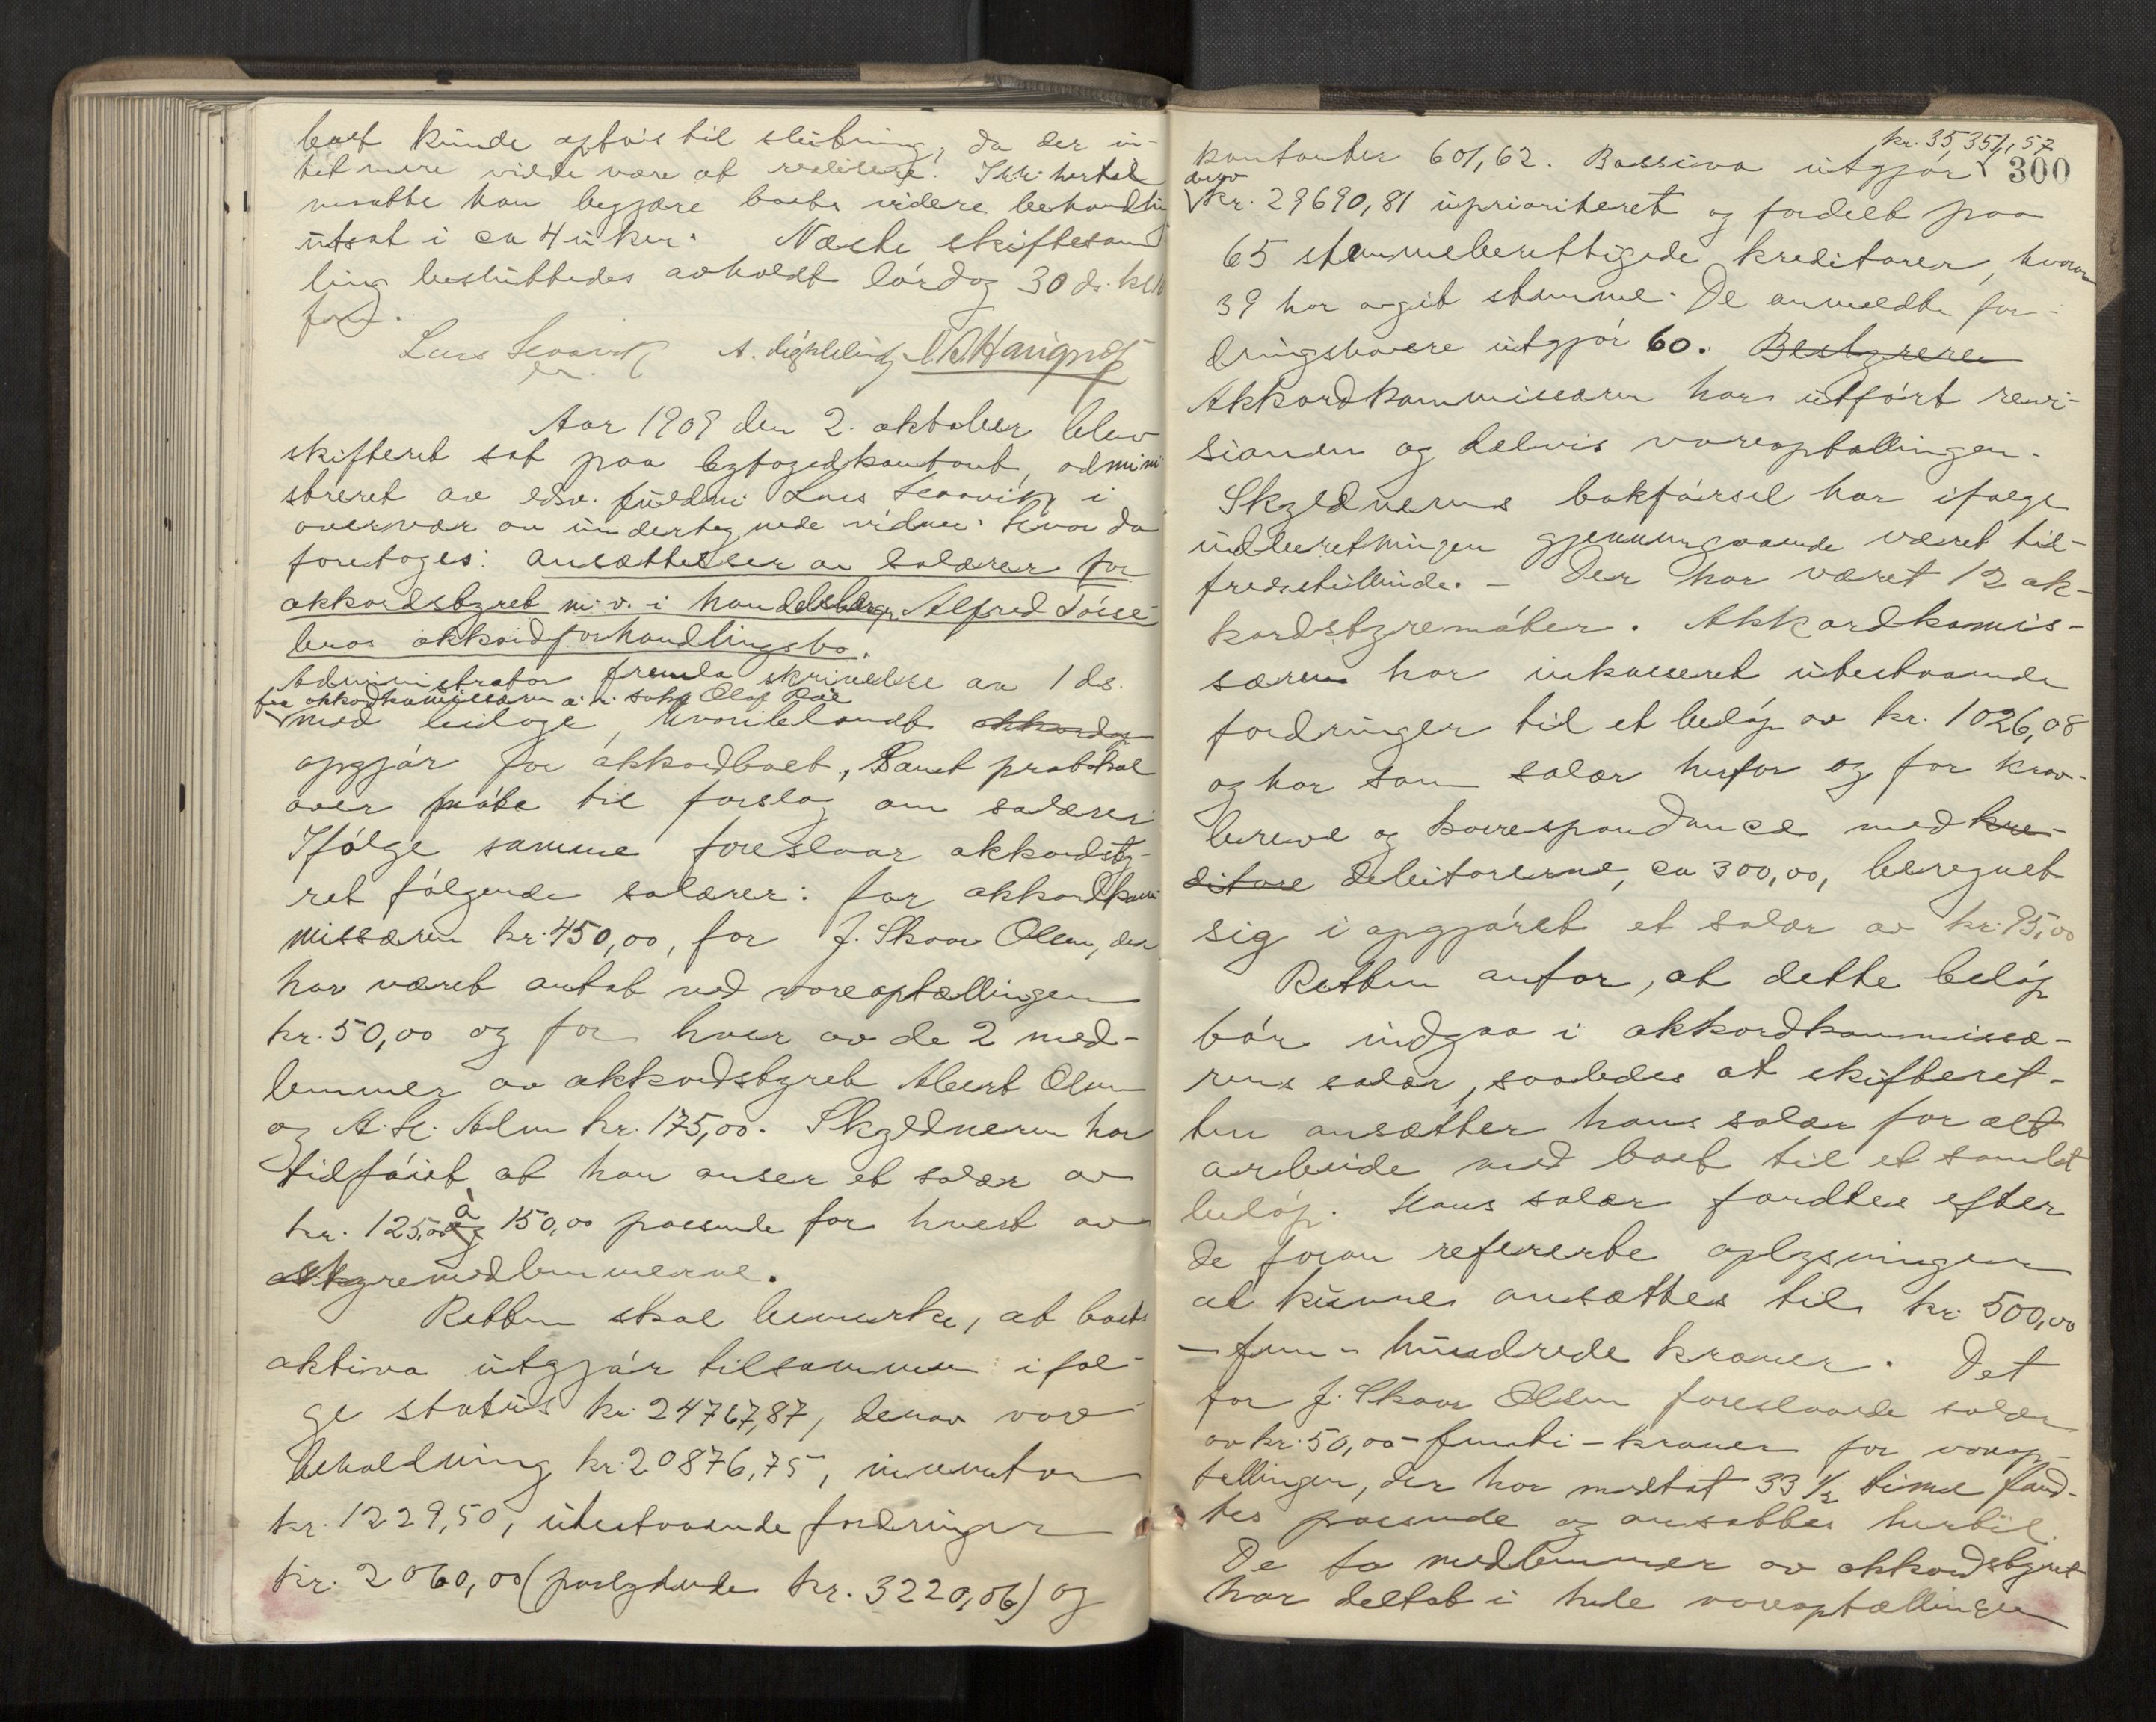 boet kunde optas til slutning, da der in-
tet mere vilde være at realisere. Ikke hertil
maatte han begjære boets videre behandling
utsat i ca 4 uker. Næste skiftesam
ling besluttedes avholdt lørdag 30 ds. kl.
fm.
Lars
Aar 1909 den 2. oktober blev
skifteret sat paa byfogedkontoret, admini
streret av edsv. fuldm. Lars i
overvær av undertegnede vidner. Hvor da
foretoges: Ansættelser av salærer for
akkordstyret m.v. i handelsborger Alfred
akkordforhandlingsbo.
Administrator fremla skrivelse av 1 ds.
fra akkordkommissæren o.r. sakf. Olaf
med bilage, hvoriblandt akkordop
opgjør for akkordboet, samt protokol
over møte til forslag om salærer
Ifølge samme foreslaar akkordsty-
ret følgende salærer: for akkordkom
missæren kr. 450,00, for J. Skaar Olsen, der
har været antat ved vareoptællingen
kr. 50,00 og for hver av de 2 med-
lemmer av akkordstyret Albert Olsen
og A. H. Alm kr. 175,00. Skyldneren har
tilføiet at han anser et salær av
kr. 125,00 à 150,00 passende for hvert av
styremedlemmerne.
Retten skal bemerke, at boets
aktiva utgjør tilsammen iføl-
ge status kr. 24767,87, derav vare
beholdning kr. 20876,75, inventar
kr. 1229,50, utestaaende fordringer
kr. 2060,00 (paalydende kr. 3220,06) og
300
kr. 35,351,57
kontanter 601,62. Passiva utgjør
derav
kr. 29690,81 uprioriteret og fordelt paa
65 stemmeberettigede kreditorer, hvorav
39 har avgit stemme. De anmeldte for-
dringshavere utgjør 60. Bestyreren
Akkordkommissæren har utført revi-
sionen og delvis vareoptællingen.
Skyldnerens bokførsel har ifølge
indberetningen gjennemgaaende været til-
fredsstillende. – Der har været 12 ak-
kordstyremøter. Akkordkomis-
særen har inkasseret utestaaende
fordringer til et beløp av kr. 1026,08
og har som salær herfor og for krav-
breve og korrespondance med kre-
ditore debitorerne, ca 300,00, beregnet
sig i opgjøret et salær av kr. 75,00
Retten anfør, at dette beløp
bør indgaa i akkordkommissæ-
rens salær, saaledes at skifteret-
ten ansætter hans salær for alt
arbeide med boet til et samlet
beløp. Hans salær fandtes efter
de foran refererte oplysninger
at kunne ansættes til kr. 500,00
– fem – hundrede kroner. Det
for J. Skaar Olsen foreslaaede salær
av kr. 50,00 – femti – kroner for vareop-
tællingen, der har medtat 33 1/2 time fand-
tes passende og ansattes hertil.
De to medlemmer av akkordstyret
har deltat i hele vareoptællingen